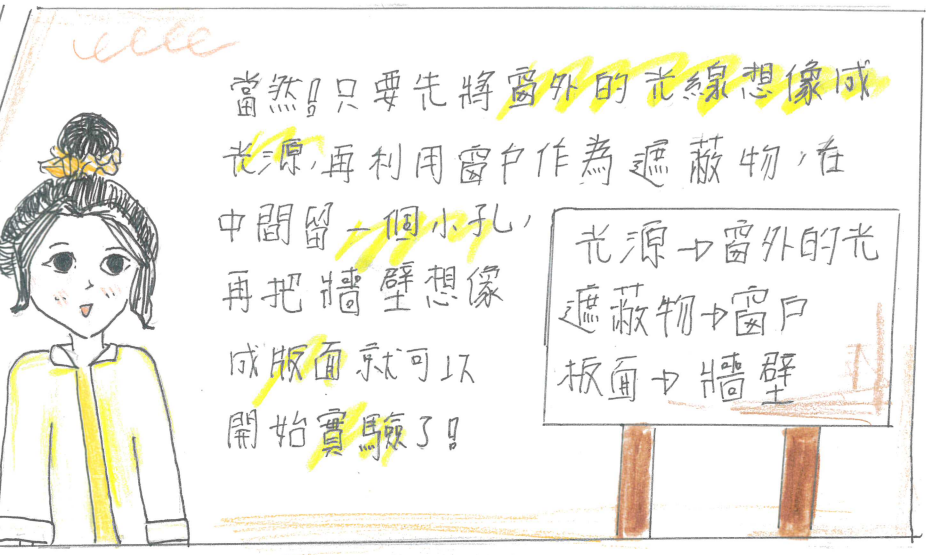 當然!只要先將窗外的光線想像成
光源,再利用窗戶作為遮蔽物,在
中間留一個小孔,
再把牆壁想像
成版面就可以
開始實驗了!
光源→窗外的光
遮蔽物→窗戶
板面→牆壁